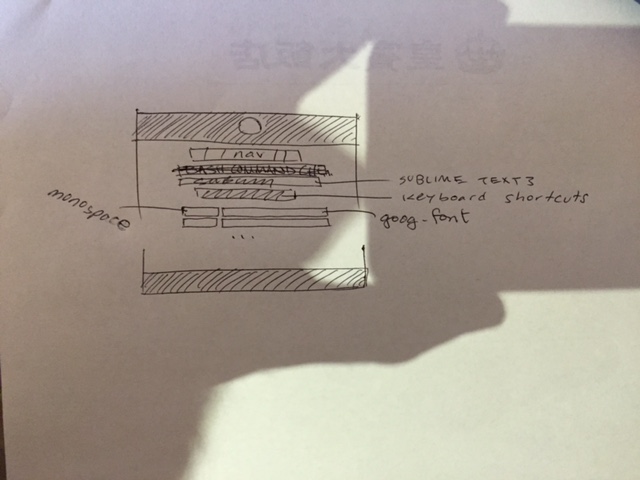 nav
BASH COMMAND
SUBLIME TEXT 3
Keyboard shortcuts
monospace
goog-font
...